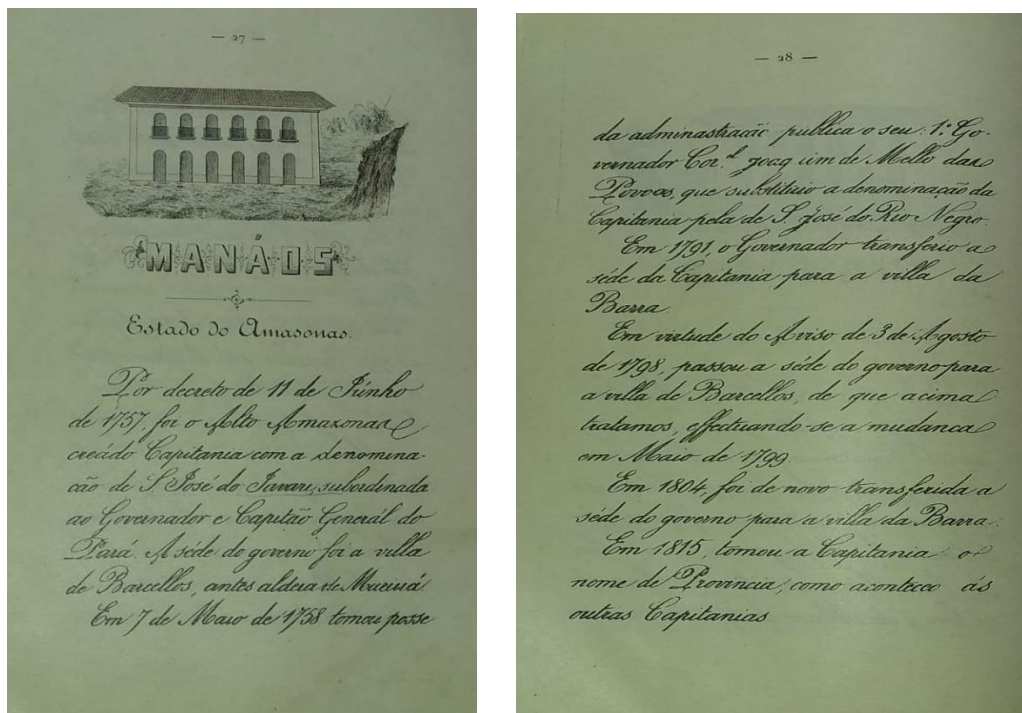 — 27 —
MANÁOS
Estado do Amasonas.
Por decreto de 11 de Júnho
de 1757, foi o Alto Amazonas
creádo Capitania com a denomina-
cão de S. José do Javary, subordinada
ao Governador e Capitão Generál do
Pará. A séde do governo foi a villa
de Barcellos, antes aldeia de
Em 7 de Maio de 1758 tomou posse
— 28 —
da adminastracão publica o seu 1º Go-
vernador Cor.el Joaquim de Mello das
Povoas, que substituio a denominação da
Capitania pela de S. José do Rio Negro.
Em 1791, o Governador transferio a
séde da Capitania para a villa da
Barra.
Em virtude do Aviso de 3 de Agosto
de 1798, passou a séde do governo para
a villa de Barcellos, de que acima
tratamos, effectuando-se a mudanca
em Maio de 1799.
Em 1804, foi de novo transferida a
séde do governo para a villa da Barra.
Em 1815, tomou a Capitania o
nome de Provincia, como aconteceo ás
outras Capitanias